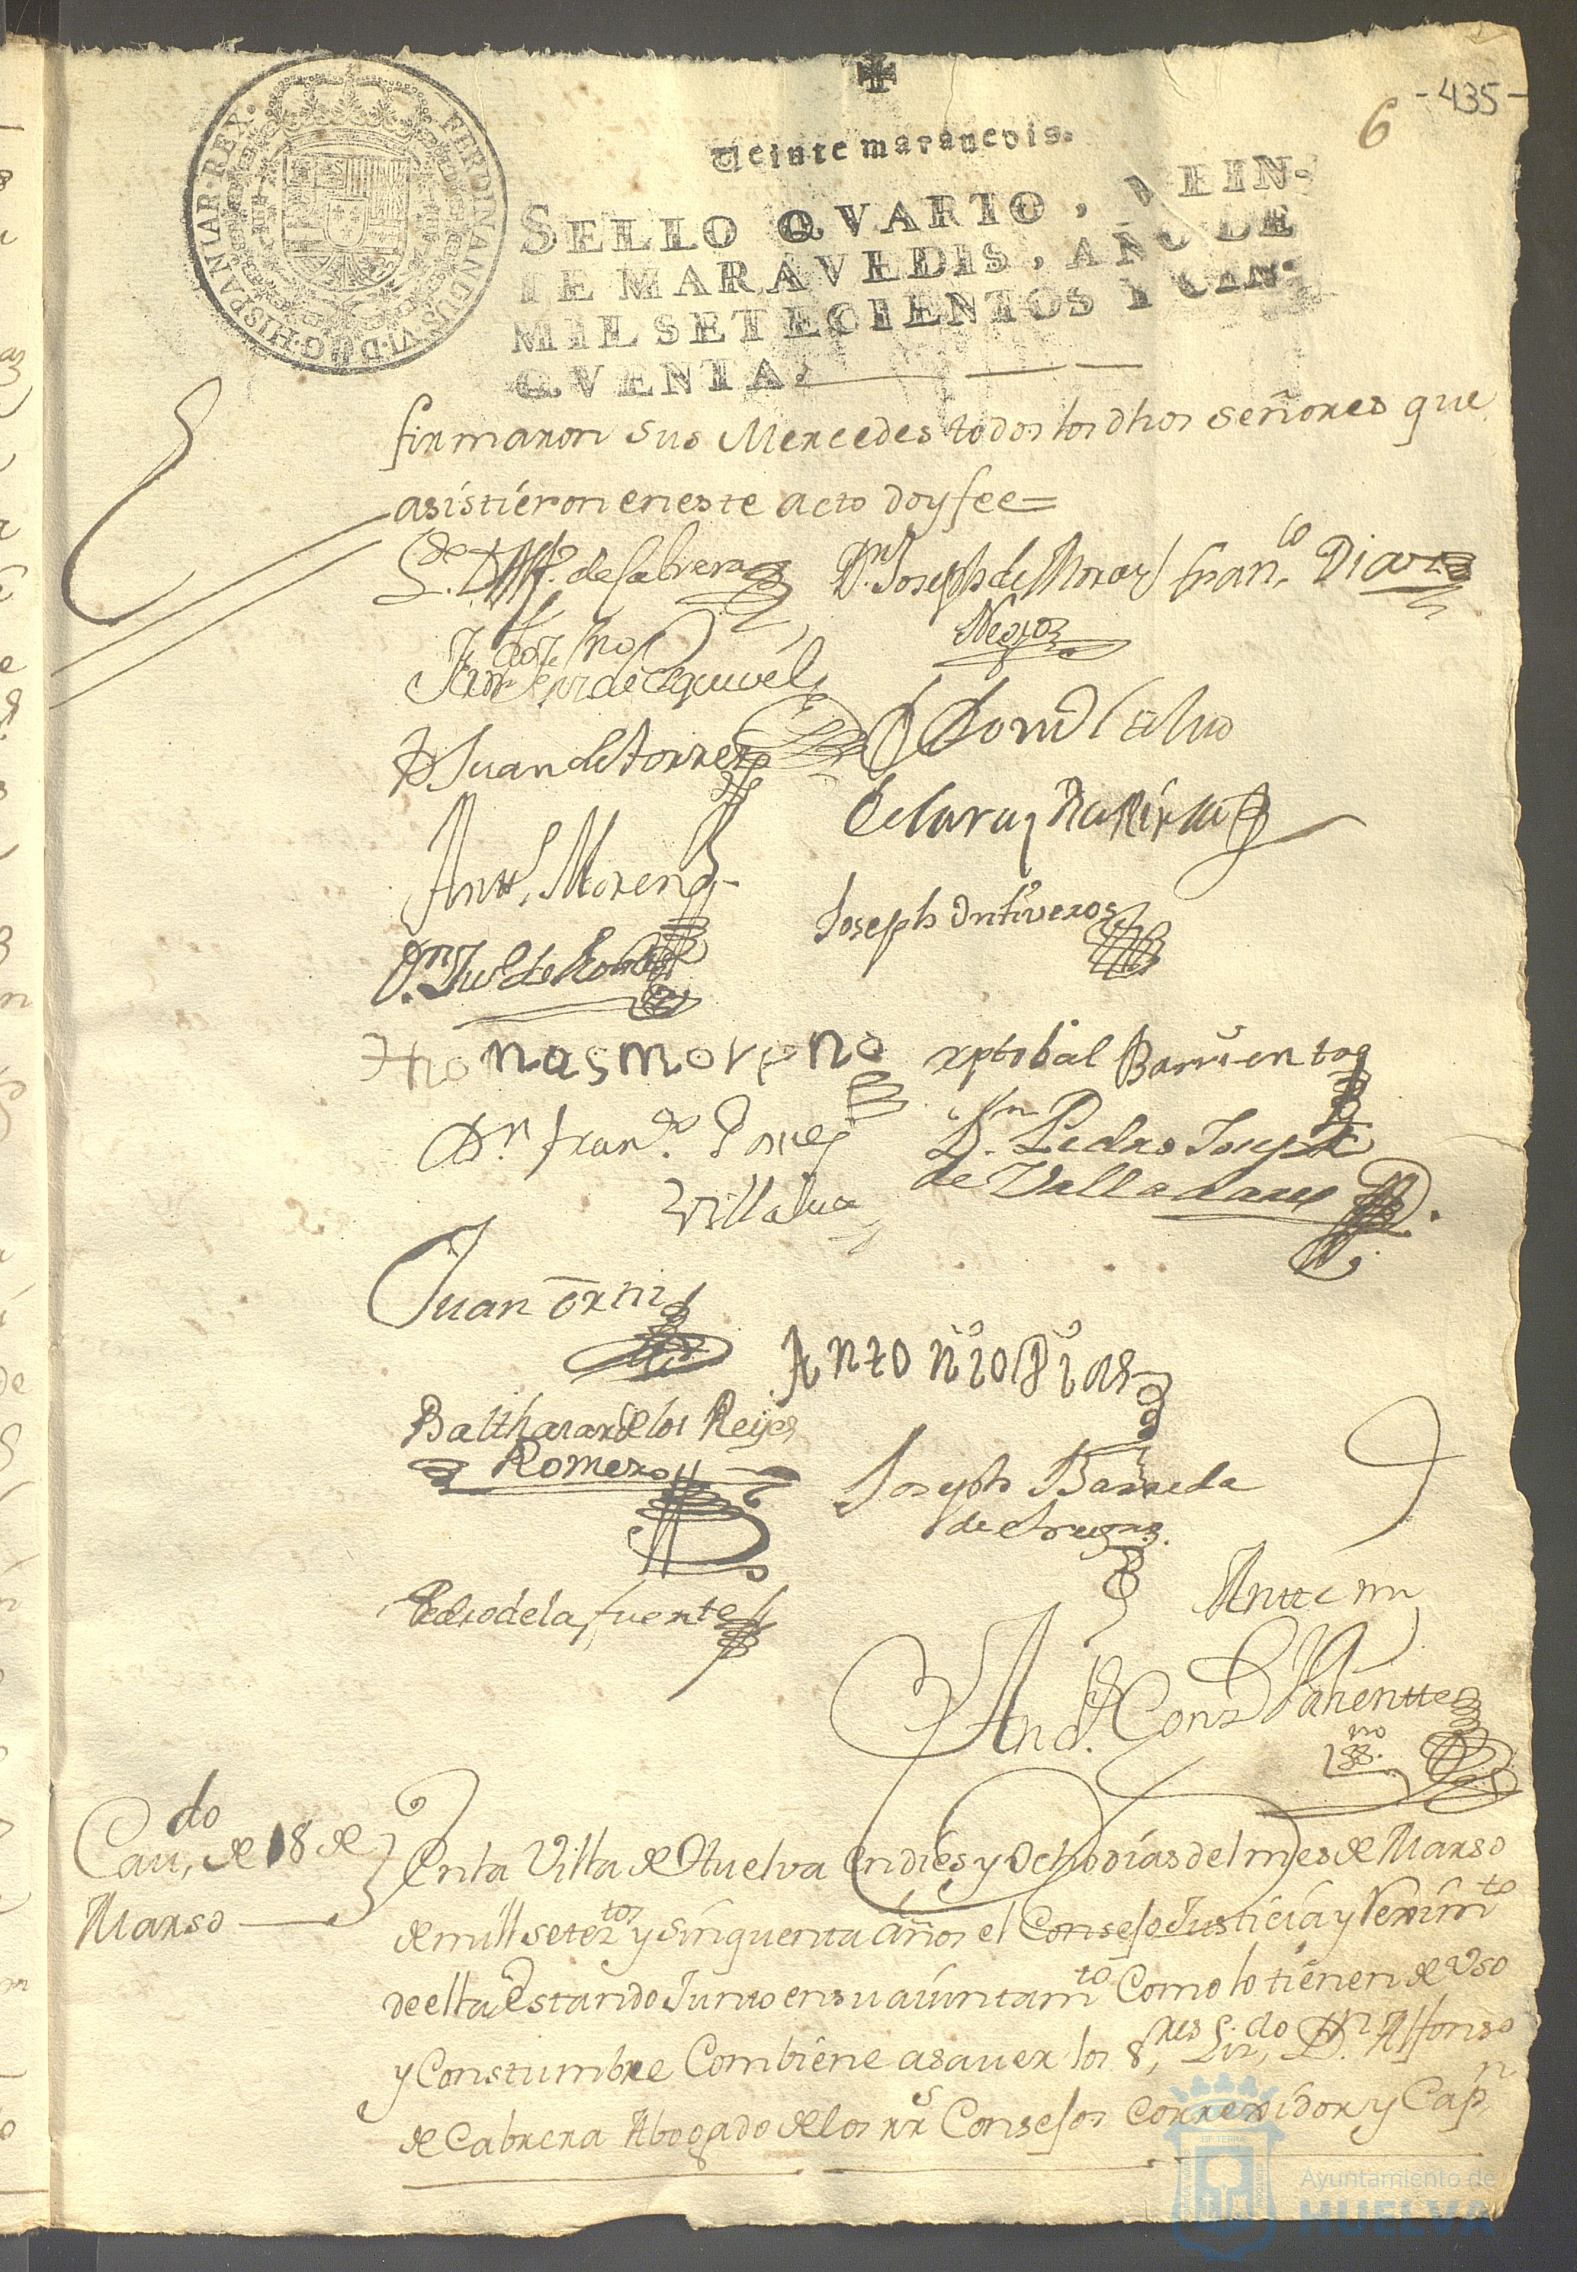 -435-
6
Veinte maravedis.
SELLO QVARTO, VEIN-
TE MARAVEDIS, AÑO DE
MIL SETECIENTOS Y CIN-
QVENTA.
FERDINANDUS·VI·D·G·HISPANIAR·REX·
firmaron sus Mercedes todos los dhos señores que
asistieron en este acto doy fee=
L.do D. Alf.o de Cabrera Dn. Joseph de Mora Fran.co Diaz
Negro
de Esquivel
D Juan de torres
Antt.o Moreno
Joseph Ontiveros
Dn.
thomas moreno xptobal Barrientos
Dn. fran.co Ponce Dn. Pedro Joseph
Villalva de Valladares
Juan
Antonio Dias
Balthasar de los Reyes
Romero
Joseph Barreda
Pedro de la fuente
Antte mi
And.s Parientte
ss.no
Cau.do de 18 de
Marso
En la Villa de Huelva en dies y ocho dias del mes de Marso
de mill setez.tos y sinquenta años el Consejo Justicia y Reximto
de ella Estando Junto en su aiuntam.to Como lo tienen de Uso
y Constumbre Combiene a saver los S.res Liz.do Dn. Alfonso
de Cabrera Abogado de los rr.s Consejos Correxidor y Cap.n
Ayuntamiento de
HUELVA